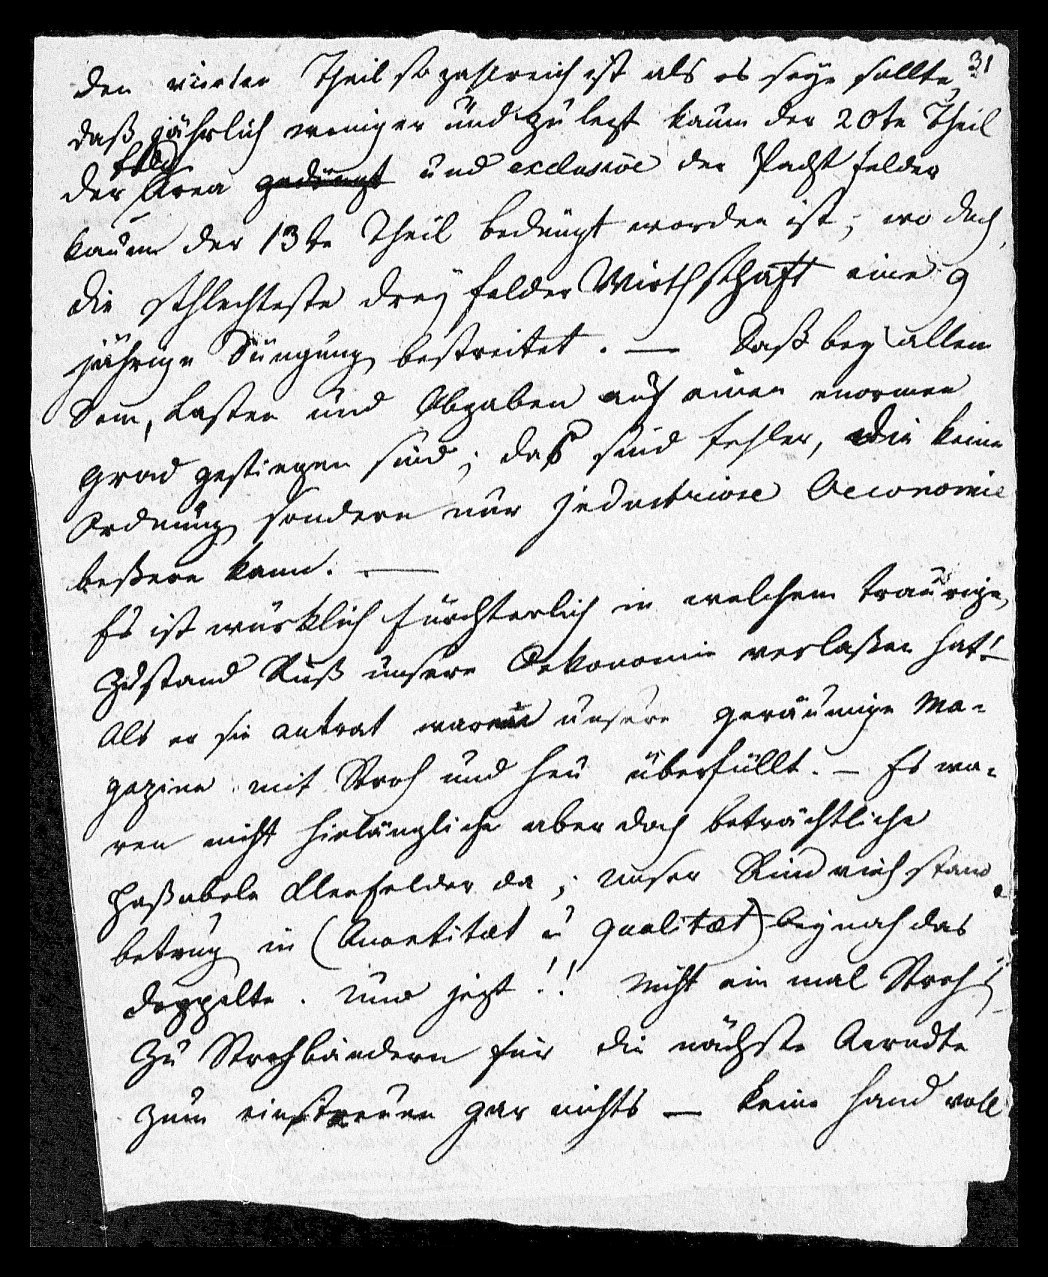 31
den vierten Theil so zahlreich ist als es seye sollte,
daß jährlich weniger und zu lezt kaum der 20te Theil
der Area gedüngt und exclusive der Pacht felder
kaum der 13te Theil bedüngt worden ist; wo doch
die schlechteste drey felder Wirthschaft eine 9
jährige Düngung bestreitet. — Daß bey allem
Dem, Lasten und Abgaben auf einen enormen
grad gestiegen sind; daß sind fehler, die keine
Ordnung sondern nur jndustriose Oeconomie
beßern kann. —
Es ist würklich fürchterlich in welchem traurige
Zustand Ruß unsere Oekonomie verlaßen hat! —
Als er sie antrat waren unsere geräumige Ma-
gazine mit Stroh und heu überfüllt. — Es wa-
ren nicht hinlängliche aber doch beträchtliche
paßabele Kleefelder da; unser Rind vieh stand
betrug in (Quantitæt u qualitæt) beynah das
doppelte. Und jezt!! Nicht ein mal Stroh
zu Strohbändern für die nächste Aerndte
zum einstreuen gar nichts — keine hand voll